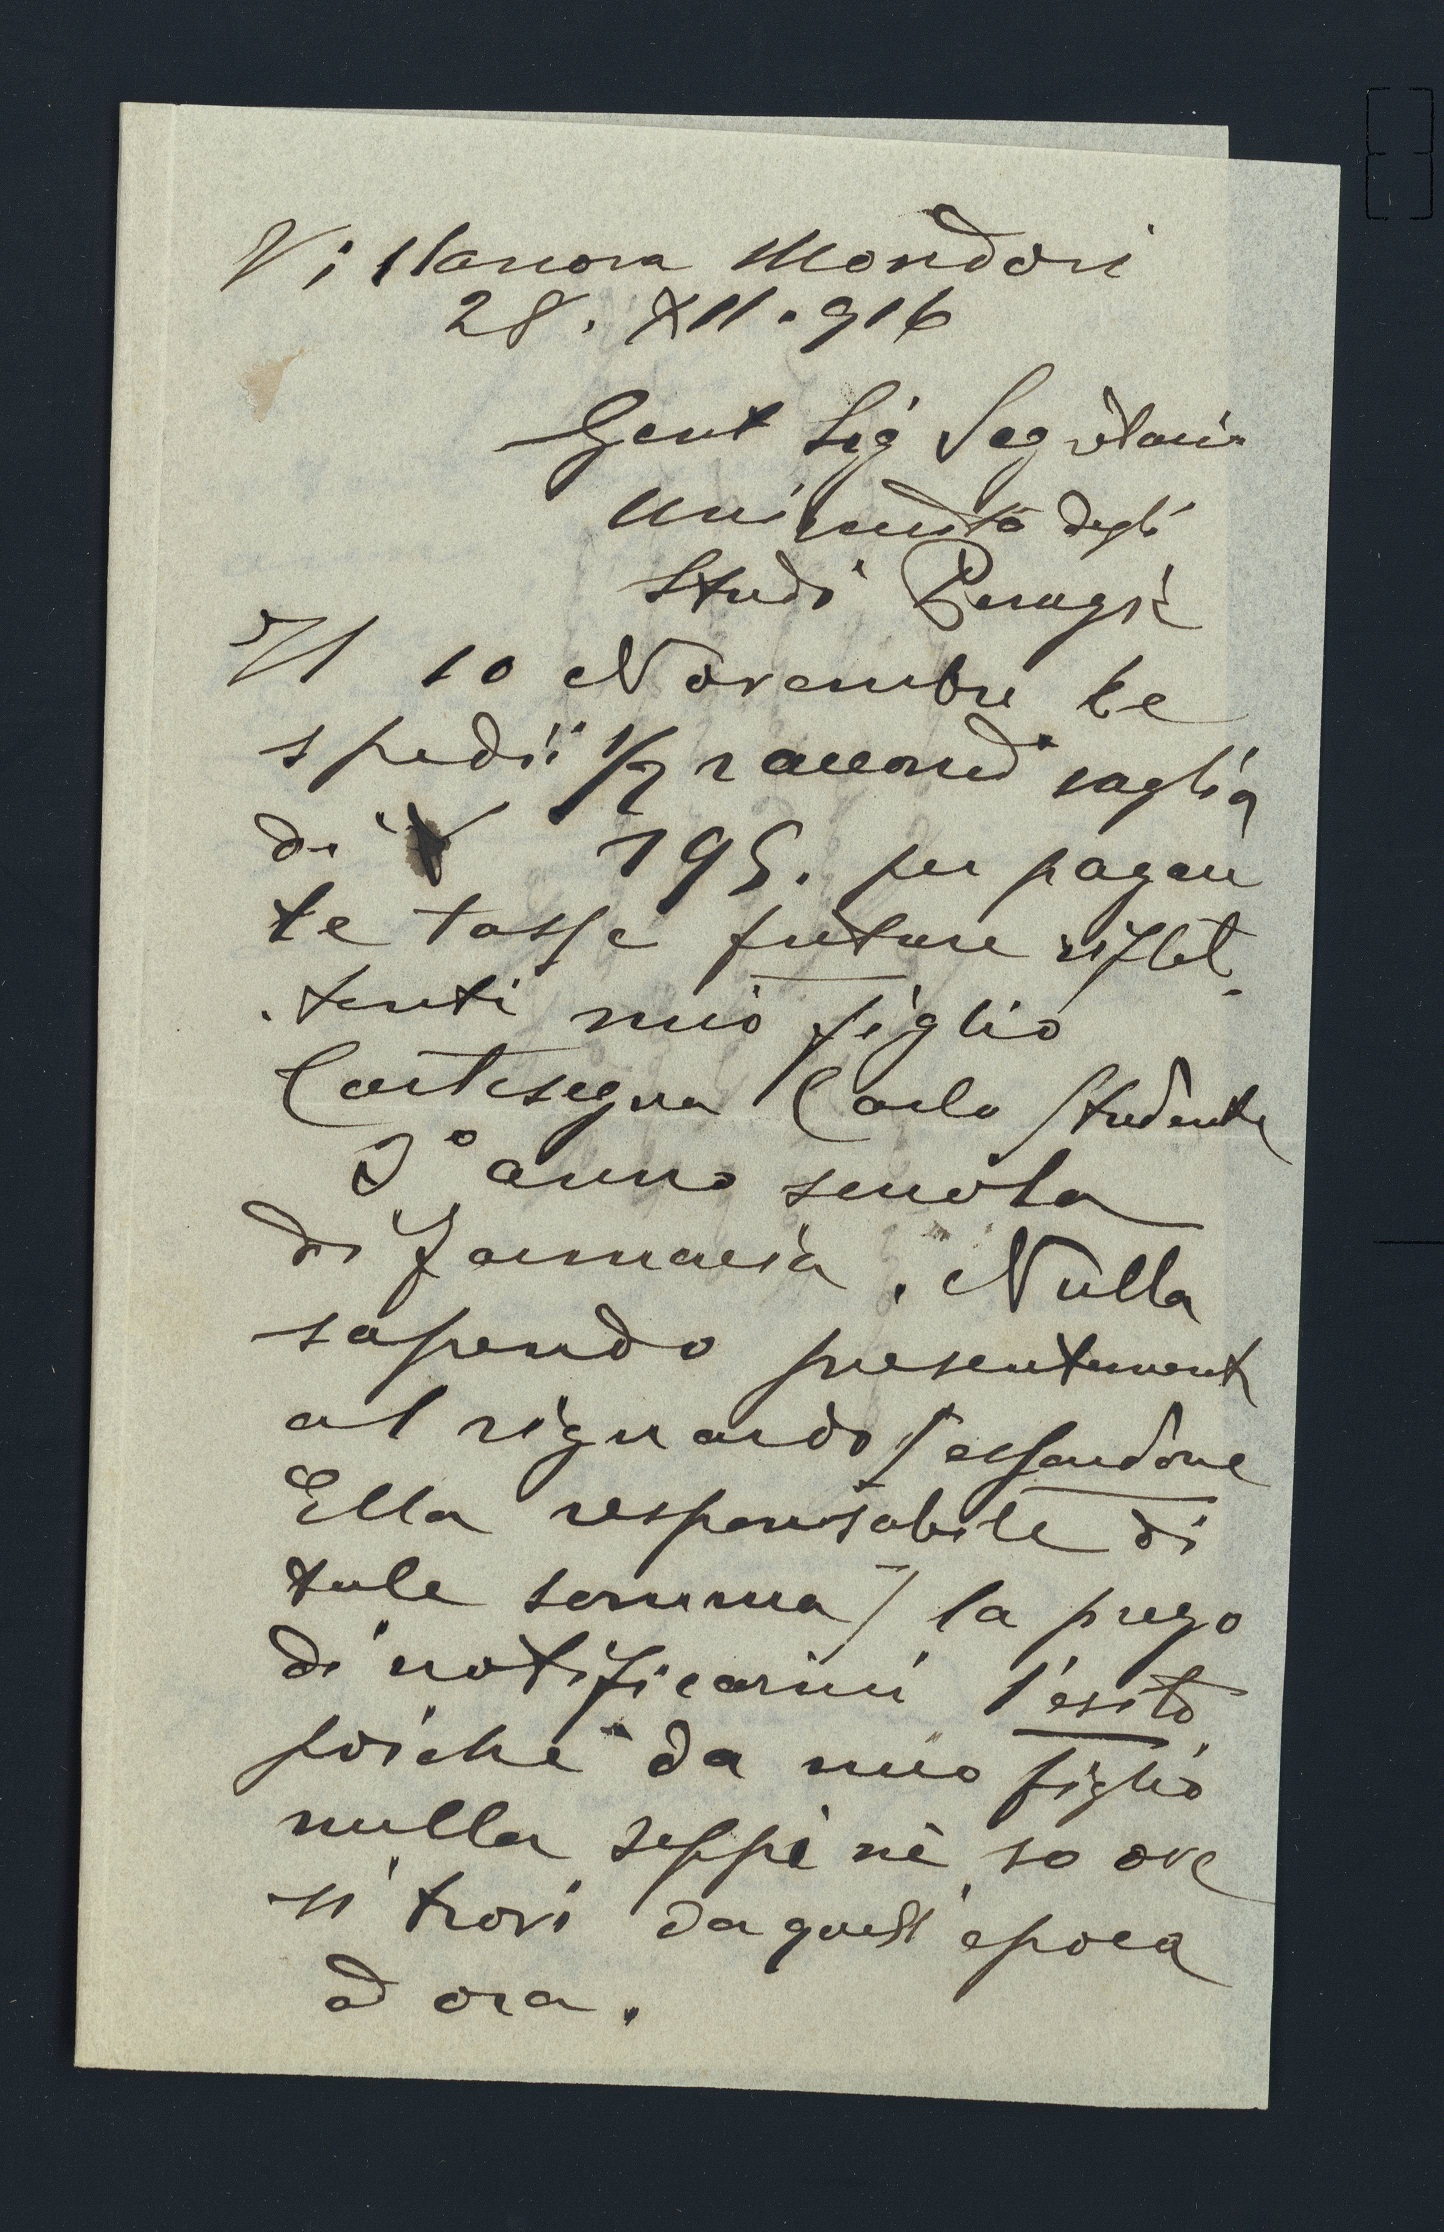 Villanova Mondovì
28. XII. 916
Gent Sig Segretario
Università degli
Studi Perugia
Il 10 Novembre le
spedii 1/2 raccomd vaglia
di 195. per pagare
le tasse future riflet-
tenti mio figlio
Cortesegna Carlo studente
I° anno scuola
di Farmacia. Nulla
sapendo presentement
al riguardo (essendone
Ella responsabile di
tale somma) la prego
di notificarmi l'esito
poichè da mio figlio
nulla seppi nè so ove
si trovi da quell'epoca
ad ora.